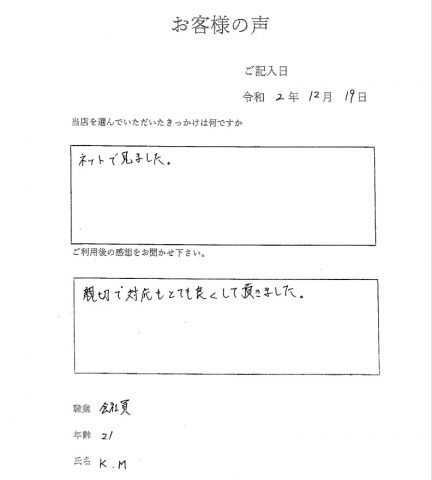 お客様の声
ご記入日
令和 2 年 12 月 19 日
当店を選んでいただいたきっかけは何ですか
ネットで見ました。
ご利用後の感想をお聞かせ下さい。
親切で対応もとても良くして頂きました。
職業 会社員
年齢 21
氏名 K.M